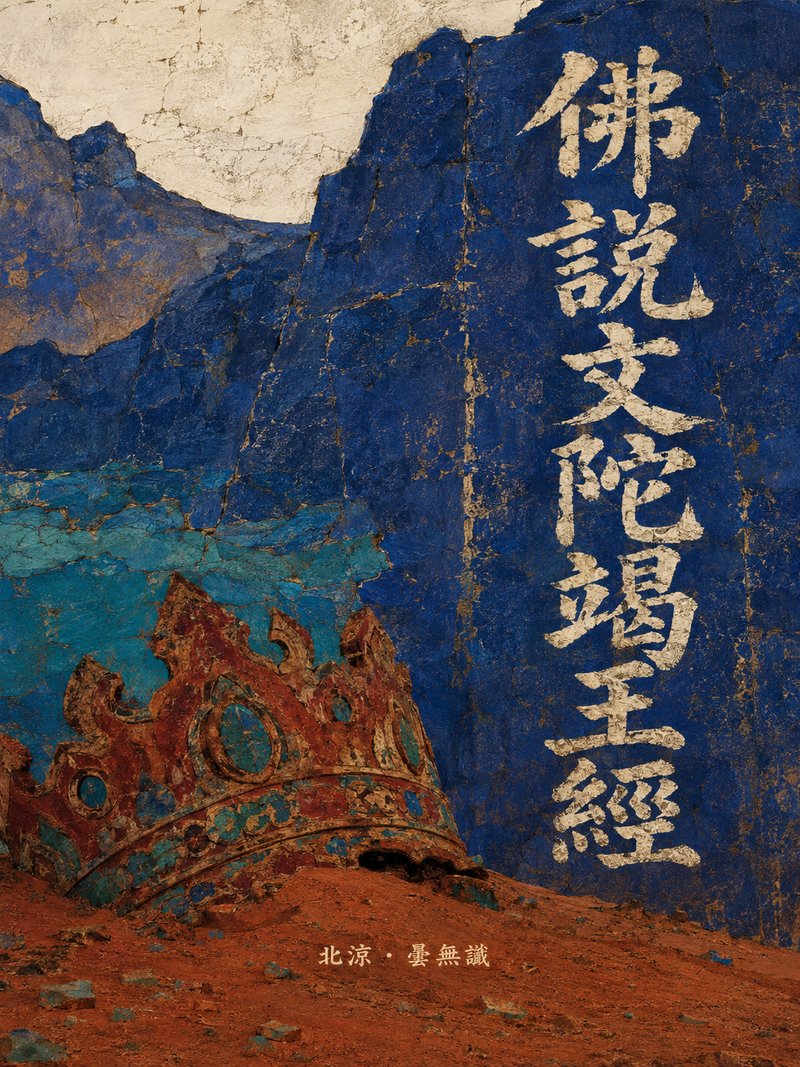 佛説文陀竭王經
北涼·曇無讖